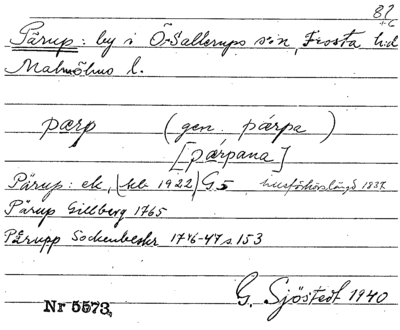 82
+c
Pärup: by i Ö Sallerups s:n, Frosta h:d
Malmöhus l.
pærp (gen. pǽrpa)
[pǽrpana]
Pärup: ek, (kb 1922) G5 husförhörslängd 1837
Pärup Gillberg 1765
Pärupp Sockenbeskr 1746-47 s. 153
G. Sjöstedt 1940
Nr 5573.